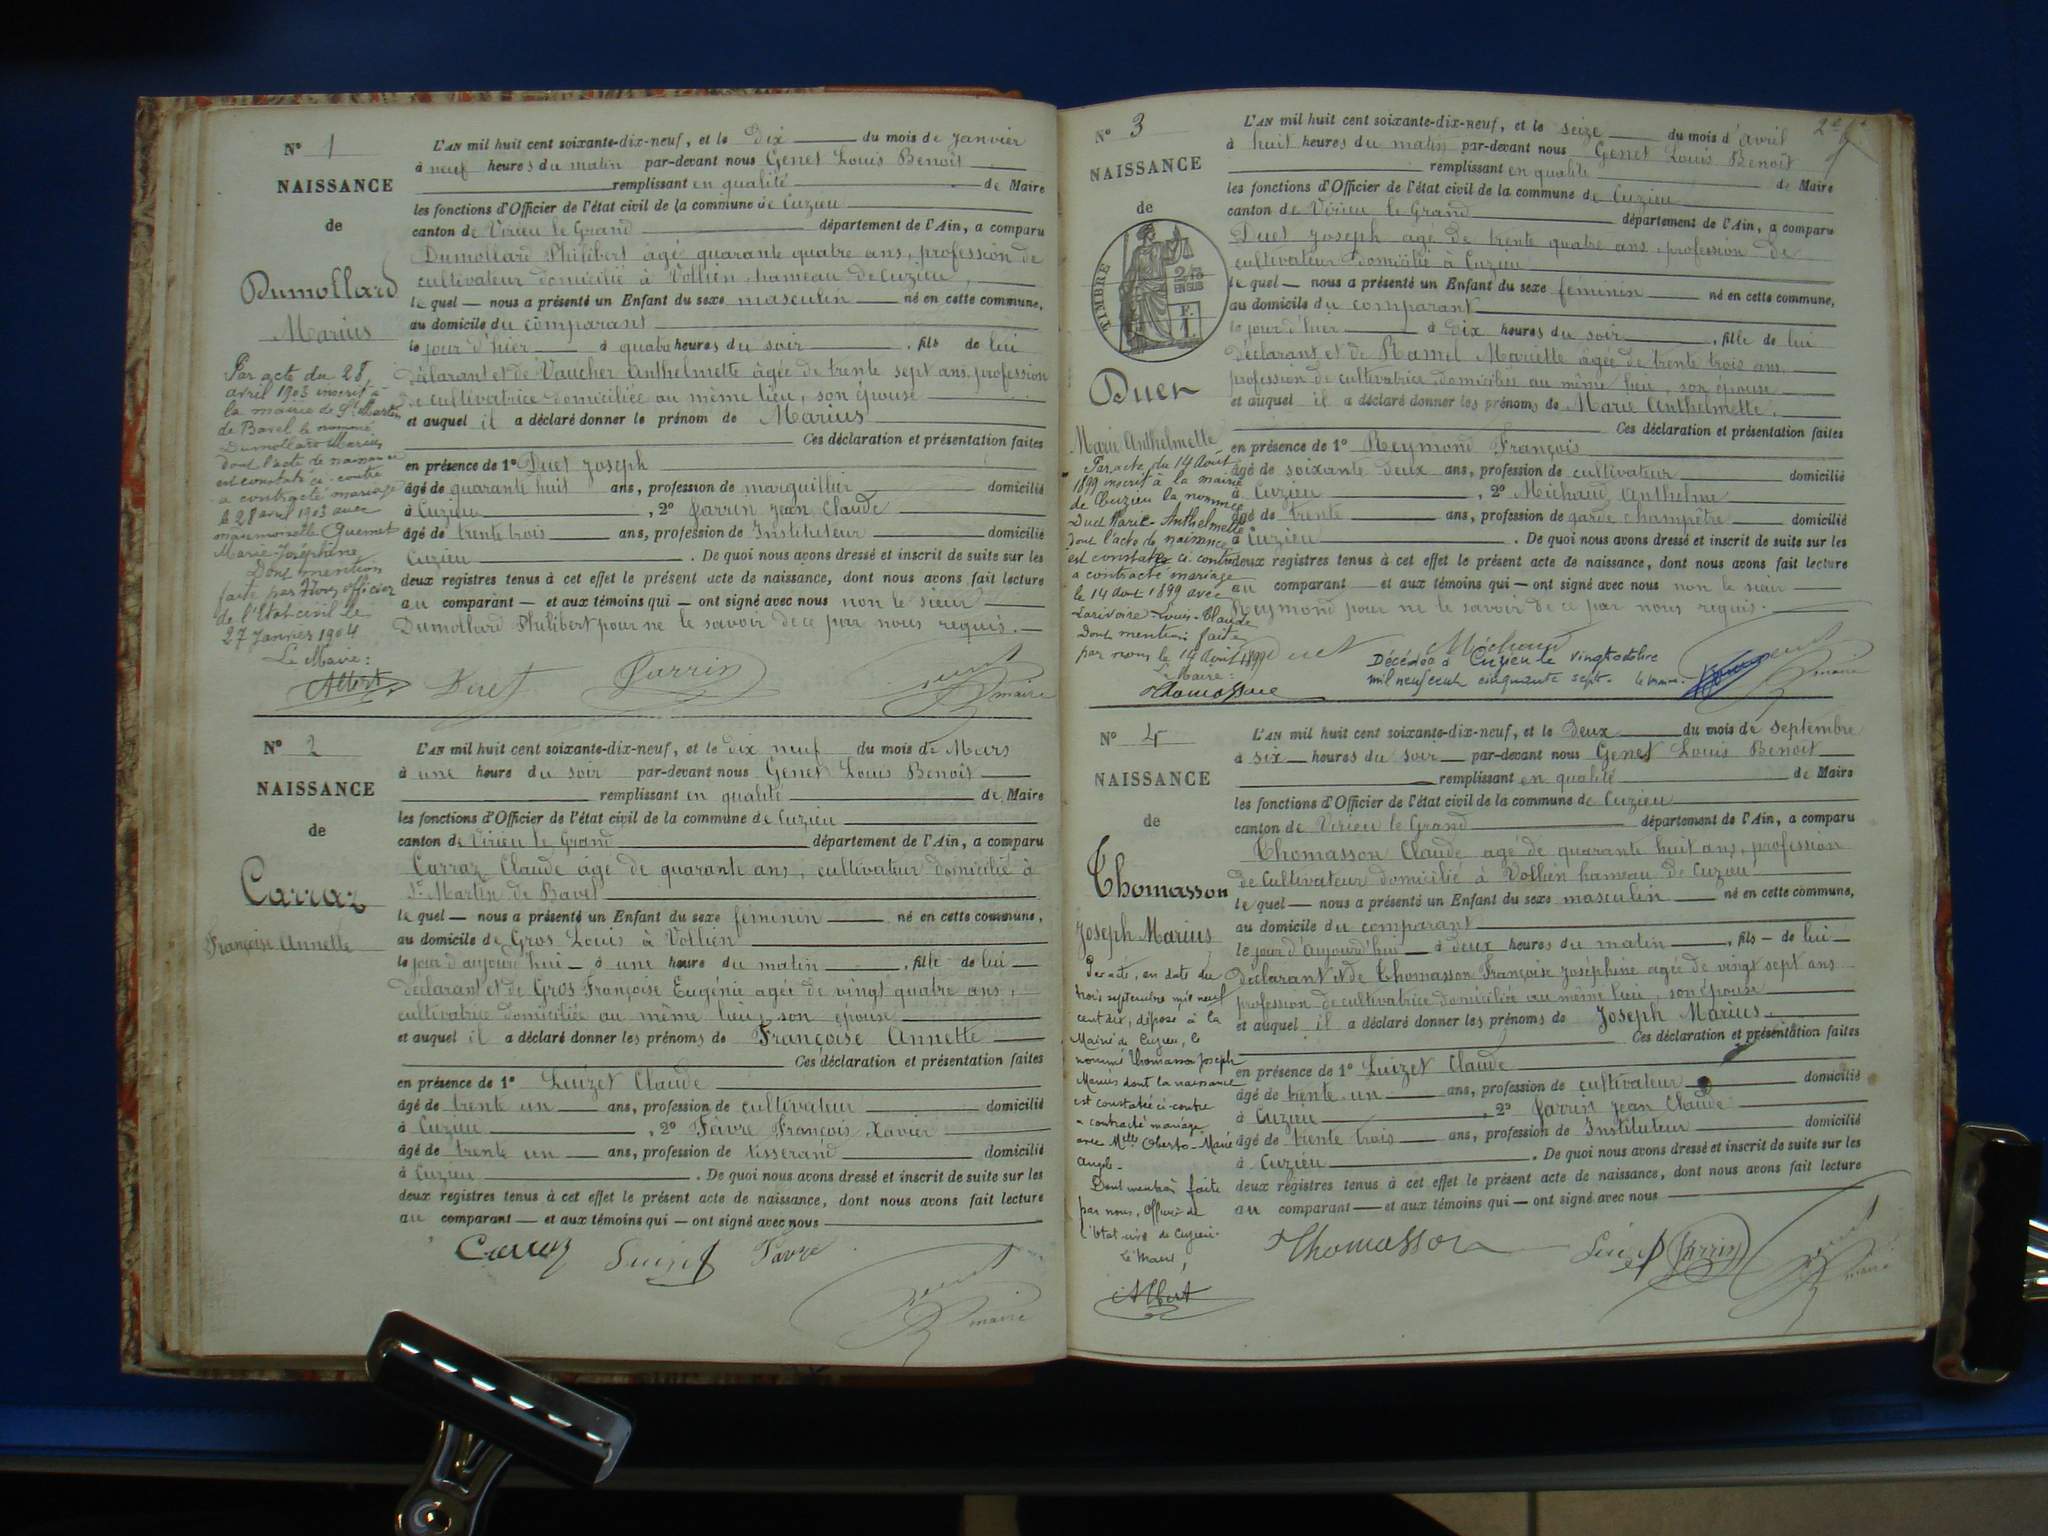 N° 1
NAISSANCE
de
Dumollard
Marius
Par acte du 28
avril 1903 inscrit à
la mairie de St Martin
de Bavel le nommé
Dumollard Marius
dont l'acte de naissance
est constaté ci-contre
a contracté mariage
le 28 avril 1903 avec
mademoiselle Guemet
Marie Joséphine
Dont mention
faite par Nous officier
de l'Etat civil le
27 Janvier 1904
Le Maire :
Albert
L'AN mil huit cent soixante-dix-neuf, et le dix du mois de Janvier
à neuf heures du matin par-devant nous Genet Louis Benoît
remplissant en qualité de Maire
les fonctions d'Officier de l'état civil de la commune de Cuzieu
canton de Virieu le Grand département de l'Ain, a comparu
Dumollard Philibert âgé quarante quatre ans, profession de
cultivateur domicilié à Vollien hameau de Cuzieu,
le quel — nous a présenté un Enfant du sexe masculin né en cette commune,
au domicile du comparant
le jour d'hier à quatre heures du soir, fils de lui
déclarant et de Vaucher Anthelmette âgée de trente sept ans, profession
de cultivatrice domiciliée au même lieu, son épouse
et auquel il a déclaré donner le prénom de Marius
Ces déclaration et présentation faites
en présence de 1° Duet Joseph
âgé de quarante huit ans, profession de marguillier domicilié
à Cuzieu, 2° Parrin Jean Claude
âgé de trente trois ans, profession de Instituteur domicilié
Cuzieu. De quoi nous avons dressé et inscrit de suite sur les
deux registres tenus à cet effet le présent acte de naissance, dont nous avons fait lecture
au comparant — et aux témoins qui — ont signé avec nous non le sieur
Dumollard Philibert pour ne le savoir de ce par nous requis.
Duet Parrin Genet maire
N° 2
NAISSANCE
de
Carraz
Françoise Annette
L'AN mil huit cent soixante-dix-neuf, et le dix neuf du mois de Mars
à une heure du soir par-devant nous Genet Louis Benoît
remplissant en qualité de Maire
les fonctions d'Officier de l'état civil de la commune de Cuzieu
canton de Virieu le Grand département de l'Ain, a comparu
Carraz Claude âgé de quarante ans, cultivateur domicilié à
St Martin de Bavel
le quel — nous a présenté un Enfant du sexe féminin né en cette commune,
au domicile de Gros Louis à Vollien
le jour d'aujourd'hui — à une heure du matin, fille de lui
déclarant et de Gros Françoise Eugénie agée de vingt quatre ans,
cultivatrice domiciliée au même lieu, son épouse
et auquel il a déclaré donner les prénoms de Françoise Annette
Ces déclaration et présentation faites
en présence de 1° Luizet Claude
âgé de trente un ans, profession de cultivateur domicilié
à Cuzieu, 2° Favre François Xavier
âgé de trente un ans, profession de tisserand domicilié
à Cuzieu. De quoi nous avons dressé et inscrit de suite sur les
deux registres tenus à cet effet le présent acte de naissance, dont nous avons fait lecture
au comparant — et aux témoins qui — ont signé avec nous
Carraz Luizet Favre
Genet maire
N° 3
NAISSANCE
de
TIMBRE
Duet
Marie Anthelmette
Par acte du 14 Août
1899 inscrit à la mairie
de Cuzieu la nommée
Duet Marie-Anthelmette
dont l'acte de naissance
est constaté ci-contre
a contracté mariage
le 14 août 1899 avec
Larivoire Louis-Claude
Dont mention faite
par nous le 14 Août 1899
Le Maire :
Thomasson
L'AN mil huit cent soixante-dix-neuf, et le seize du mois d'avril
à huit heures du matin par-devant nous Genet Louis Benoît
remplissant en qualité de Maire
les fonctions d'Officier de l'état civil de la commune de Cuzieu
canton de Virieu le Grand département de l'Ain, a comparu
Duet Joseph âgé de trente quatre ans, profession de
cultivateur domicilié à Cuzieu
le quel — nous a présenté un Enfant du sexe féminin né en cette commune,
au domicile du comparant
le jour d'hier à dix heures du soir, fille de lui
déclarant et de Ramel Mariette âgée de trente trois ans,
profession de cultivatrice domiciliée au même lieu, son épouse
et auquel il a déclaré donner les prénoms de Marie Anthelmette.
Ces déclaration et présentation faites
en présence de 1° Reymond François
âgé de soixante deux ans, profession de cultivateur domicilié
à Cuzieu, 2° Michaud Anthelme
âgé de trente ans, profession de garde champêtre domicilié
à Cuzieu. De quoi nous avons dressé et inscrit de suite sur les
deux registres tenus à cet effet le présent acte de naissance, dont nous avons fait lecture
au comparant — et aux témoins qui — ont signé avec nous non le sieur
Reymond pour ne le savoir de ce par nous requis.
Duet Michaud Genet maire
Décédée à Cuzieu le vingt octobre
mil neuf cent cinquante sept. le maire.
N° 4
NAISSANCE
de
Thomasson
Joseph Marius
Par acte, en date du
trois septembre mil neuf
cent dix, déposé à la
Mairie de Cuzieu, le
nommé Thomasson Joseph
Marius dont la naissance
est constatée ci-contre
a contracté mariage
avec Melle Oberto Marie
Angèle.
Dont mention faite
par nous, Officier de
l'état civil de Cuzieu.
Le Maire,
Albert
L'AN mil huit cent soixante-dix-neuf, et le deux du mois de septembre
à six heures du soir par-devant nous Genet Louis Benoît
remplissant en qualité de Maire
les fonctions d'Officier de l'état civil de la commune de Cuzieu
canton de Virieu le Grand département de l'Ain, a comparu
Thomasson Claude agé de quarante huit ans, profession
de cultivateur domicilié à Vollien hameau de Cuzieu
le quel — nous a présenté un Enfant du sexe masculin né en cette commune,
au domicile du comparant
le jour d'aujourd'hui à deux heures du matin, fils — de lui
déclarant et de Thomasson Françoise Joséphine agée de vingt sept ans
profession de cultivatrice domiciliée au même lieu, son épouse
et auquel il a déclaré donner les prénoms de Joseph Marius.
Ces déclaration et présentation faites
en présence de 1° Luizet Claude
âgé de trente un ans, profession de cultivateur domicilié
à Cuzieu, 2° Parrin Jean Claude
âgé de trente trois ans, profession de Instituteur domicilié
à Cuzieu. De quoi nous avons dressé et inscrit de suite sur les
deux registres tenus à cet effet le présent acte de naissance, dont nous avons fait lecture
au comparant — et aux témoins qui — ont signé avec nous
Thomasson Luizet Parrin Genet maire